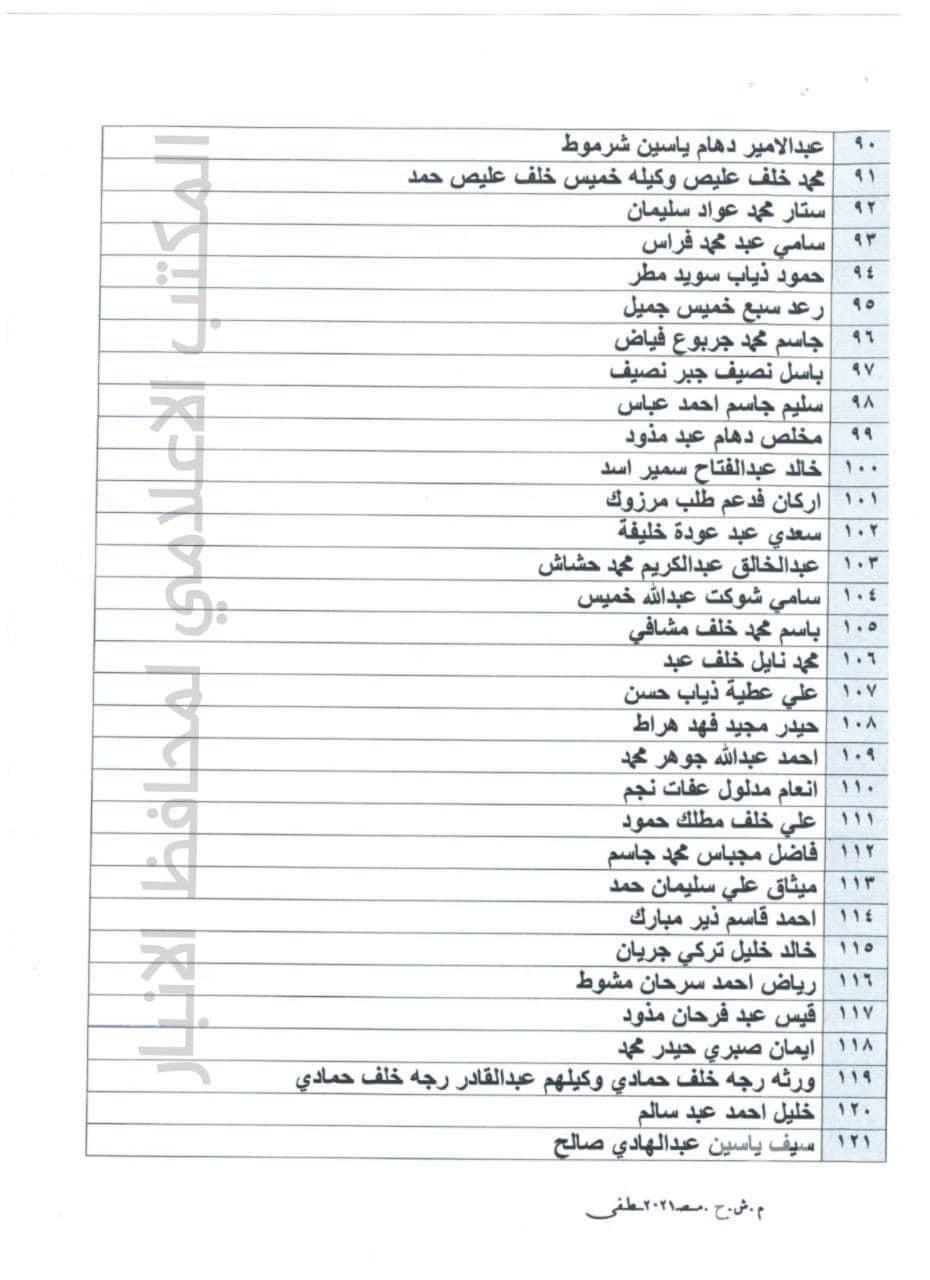 ٩٠ عبدالامير دهام ياسين شرموط
٩١ محمد خلف عليص وكيله خميس خلف عليص حمد
٩٢ ستار محمد عواد سليمان
٩٣ سامي عبد محمد فراس
٩٤ حمود ذياب سويد مطر
٩٥ رعد سبع خميس جميل
٩٦ جاسم محمد جربوع فياض
٩٧ باسل نصيف جبر نصيف
٩٨ سليم جاسم احمد عباس
٩٩ مخلص دهام عبد مذود
١٠٠ خالد عبدالفتاح سمير اسد
١٠١ اركان فدعم طلب مرزوك
١٠٢ سعدي عبد عودة خليفة
١٠٣ عبدالخالق عبدالكريم محمد حشاش
١٠٤ سامي شوكت عبدالله خميس
١٠٥ باسم محمد خلف مشافي
١٠٦ محمد نايل خلف عبد
١٠٧ علي عطية ذياب حسن
١٠٨ حيدر مجيد فهد هراط
١٠٩ احمد عبدالله جوهر محمد
١١٠ انعام مدلول عفات نجم
١١١ علي خلف مطلك حمود
١١٢ فاضل مجباس محمد جاسم
١١٣ ميثاق علي سليمان حمد
١١٤ احمد قاسم ذير مبارك
١١٥ خالد خليل تركي جريان
١١٦ رياض احمد سرحان مشوط
١١٧ قيس عبد فرحان مذود
١١٨ ايمان صبري حيدر محمد
١١٩ ورثه رجه خلف حمادي وكيلهم عبدالقادر رجه خلف حمادي
١٢٠ خليل احمد عبد سالم
١٢١ سيف ياسين عبدالهادي صالح
م.ش.ح.مصـ٢٠٢١ـطفى
المكتب الاعلامي لمحافظ الانبار